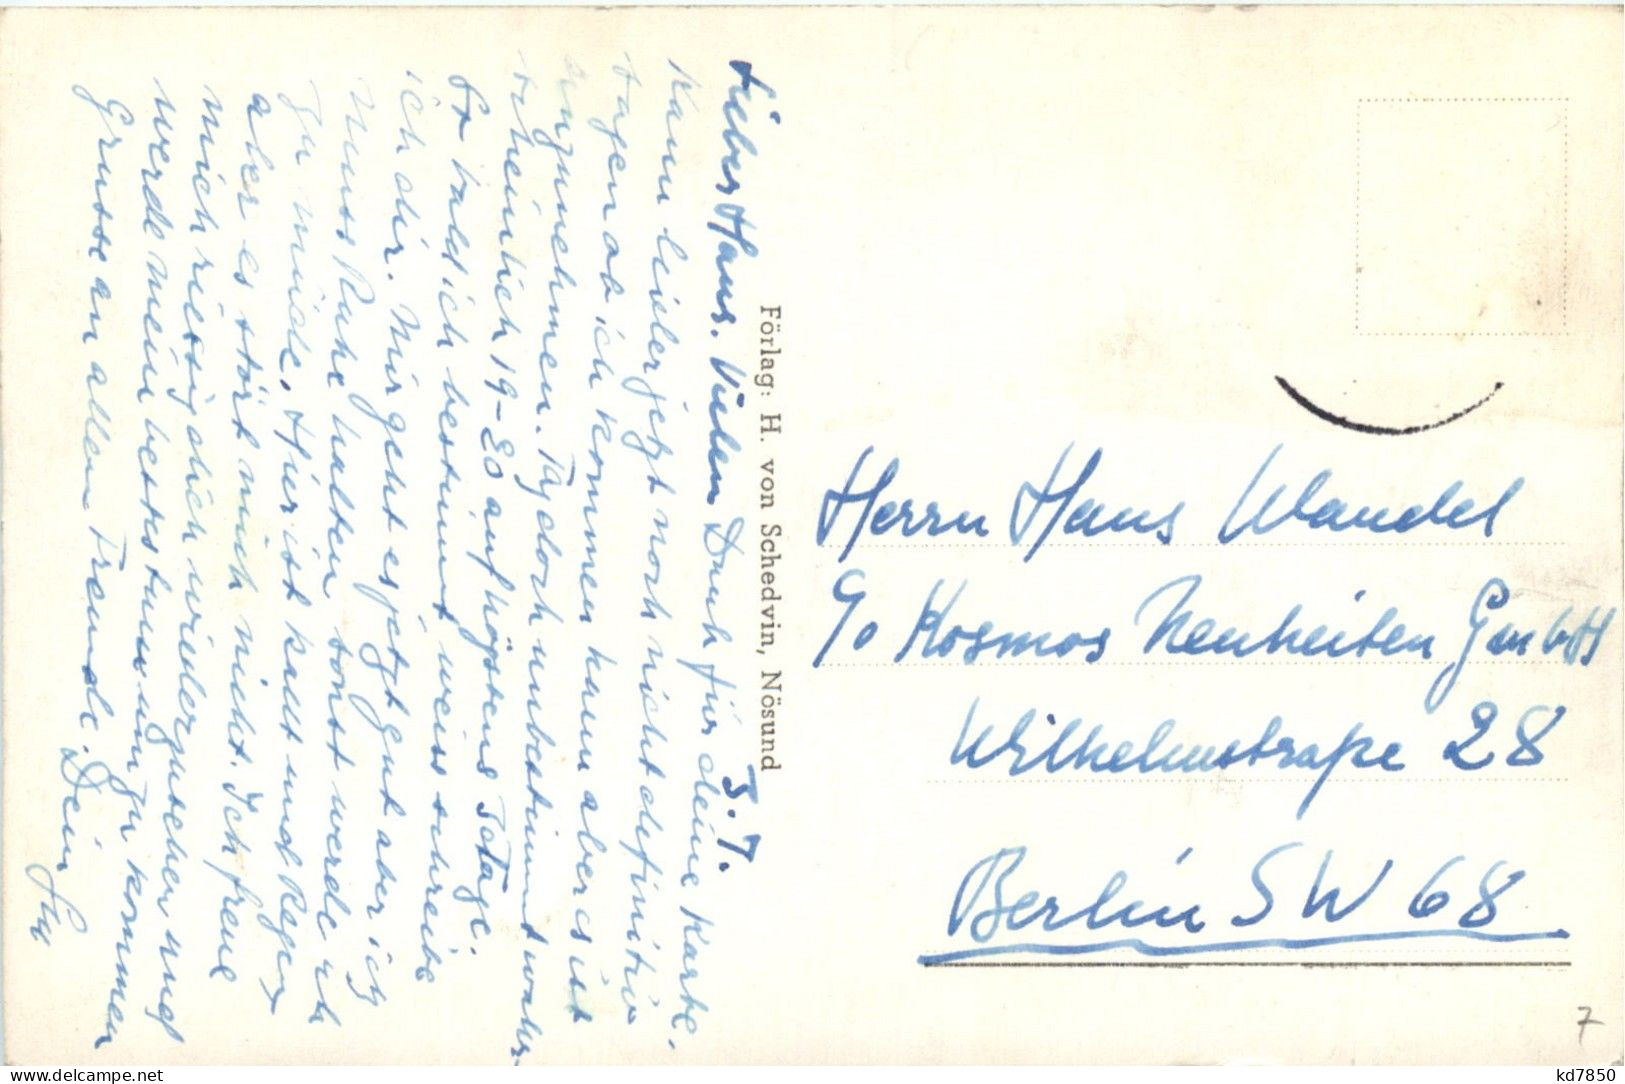 3. 7.
Lieber Hans. Vielen Dank für deine Karte.
Kann lieber jetzt noch nicht definitiv
sagen ob ich kommen kann aber es ist
anzunehmen. Tag doch unbestimmt wahr-
scheinlich 19-20 auf högstens 10 Tage.
So bald ich bestimmt weiss schreibe
ich dir. Mir geht es jetzt gut aber ich
muss Ruhe halten sonst werde ich
zu müde. Hier ist kallt und Regen
aber es stört mich nicht. Ich freue
mich riesig dich wiederzusehen und
werde mein bestes tun um zu kommen
Grüsse an allen Freunde. Dein
Förlag: H. von Schedvin, Nösund
Herrn Hans Wandel
c/o Kosmos Neuheiten GmbH
Wilhelmstraße 28
Berlin SW 68
7
https://www.delcampe.net
kd7850